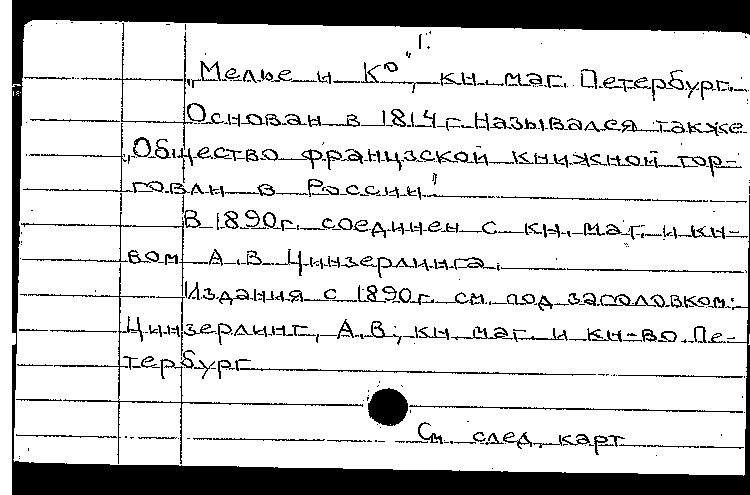 1.
„Мелье и К°", кн. маг. Петербург.
Основан в 1814 г. Назывался также
„Общество французской книжной тор-
говли в России".
В 1890 г. соединен с кн. маг. и кн-
вом А.В. Цинзерлинга.
Издания с 1890 г. см. под заголовком:
Цинзерлинг, А.В; кн. маг. и кн-во. Пе-
тербург
См. след. карт